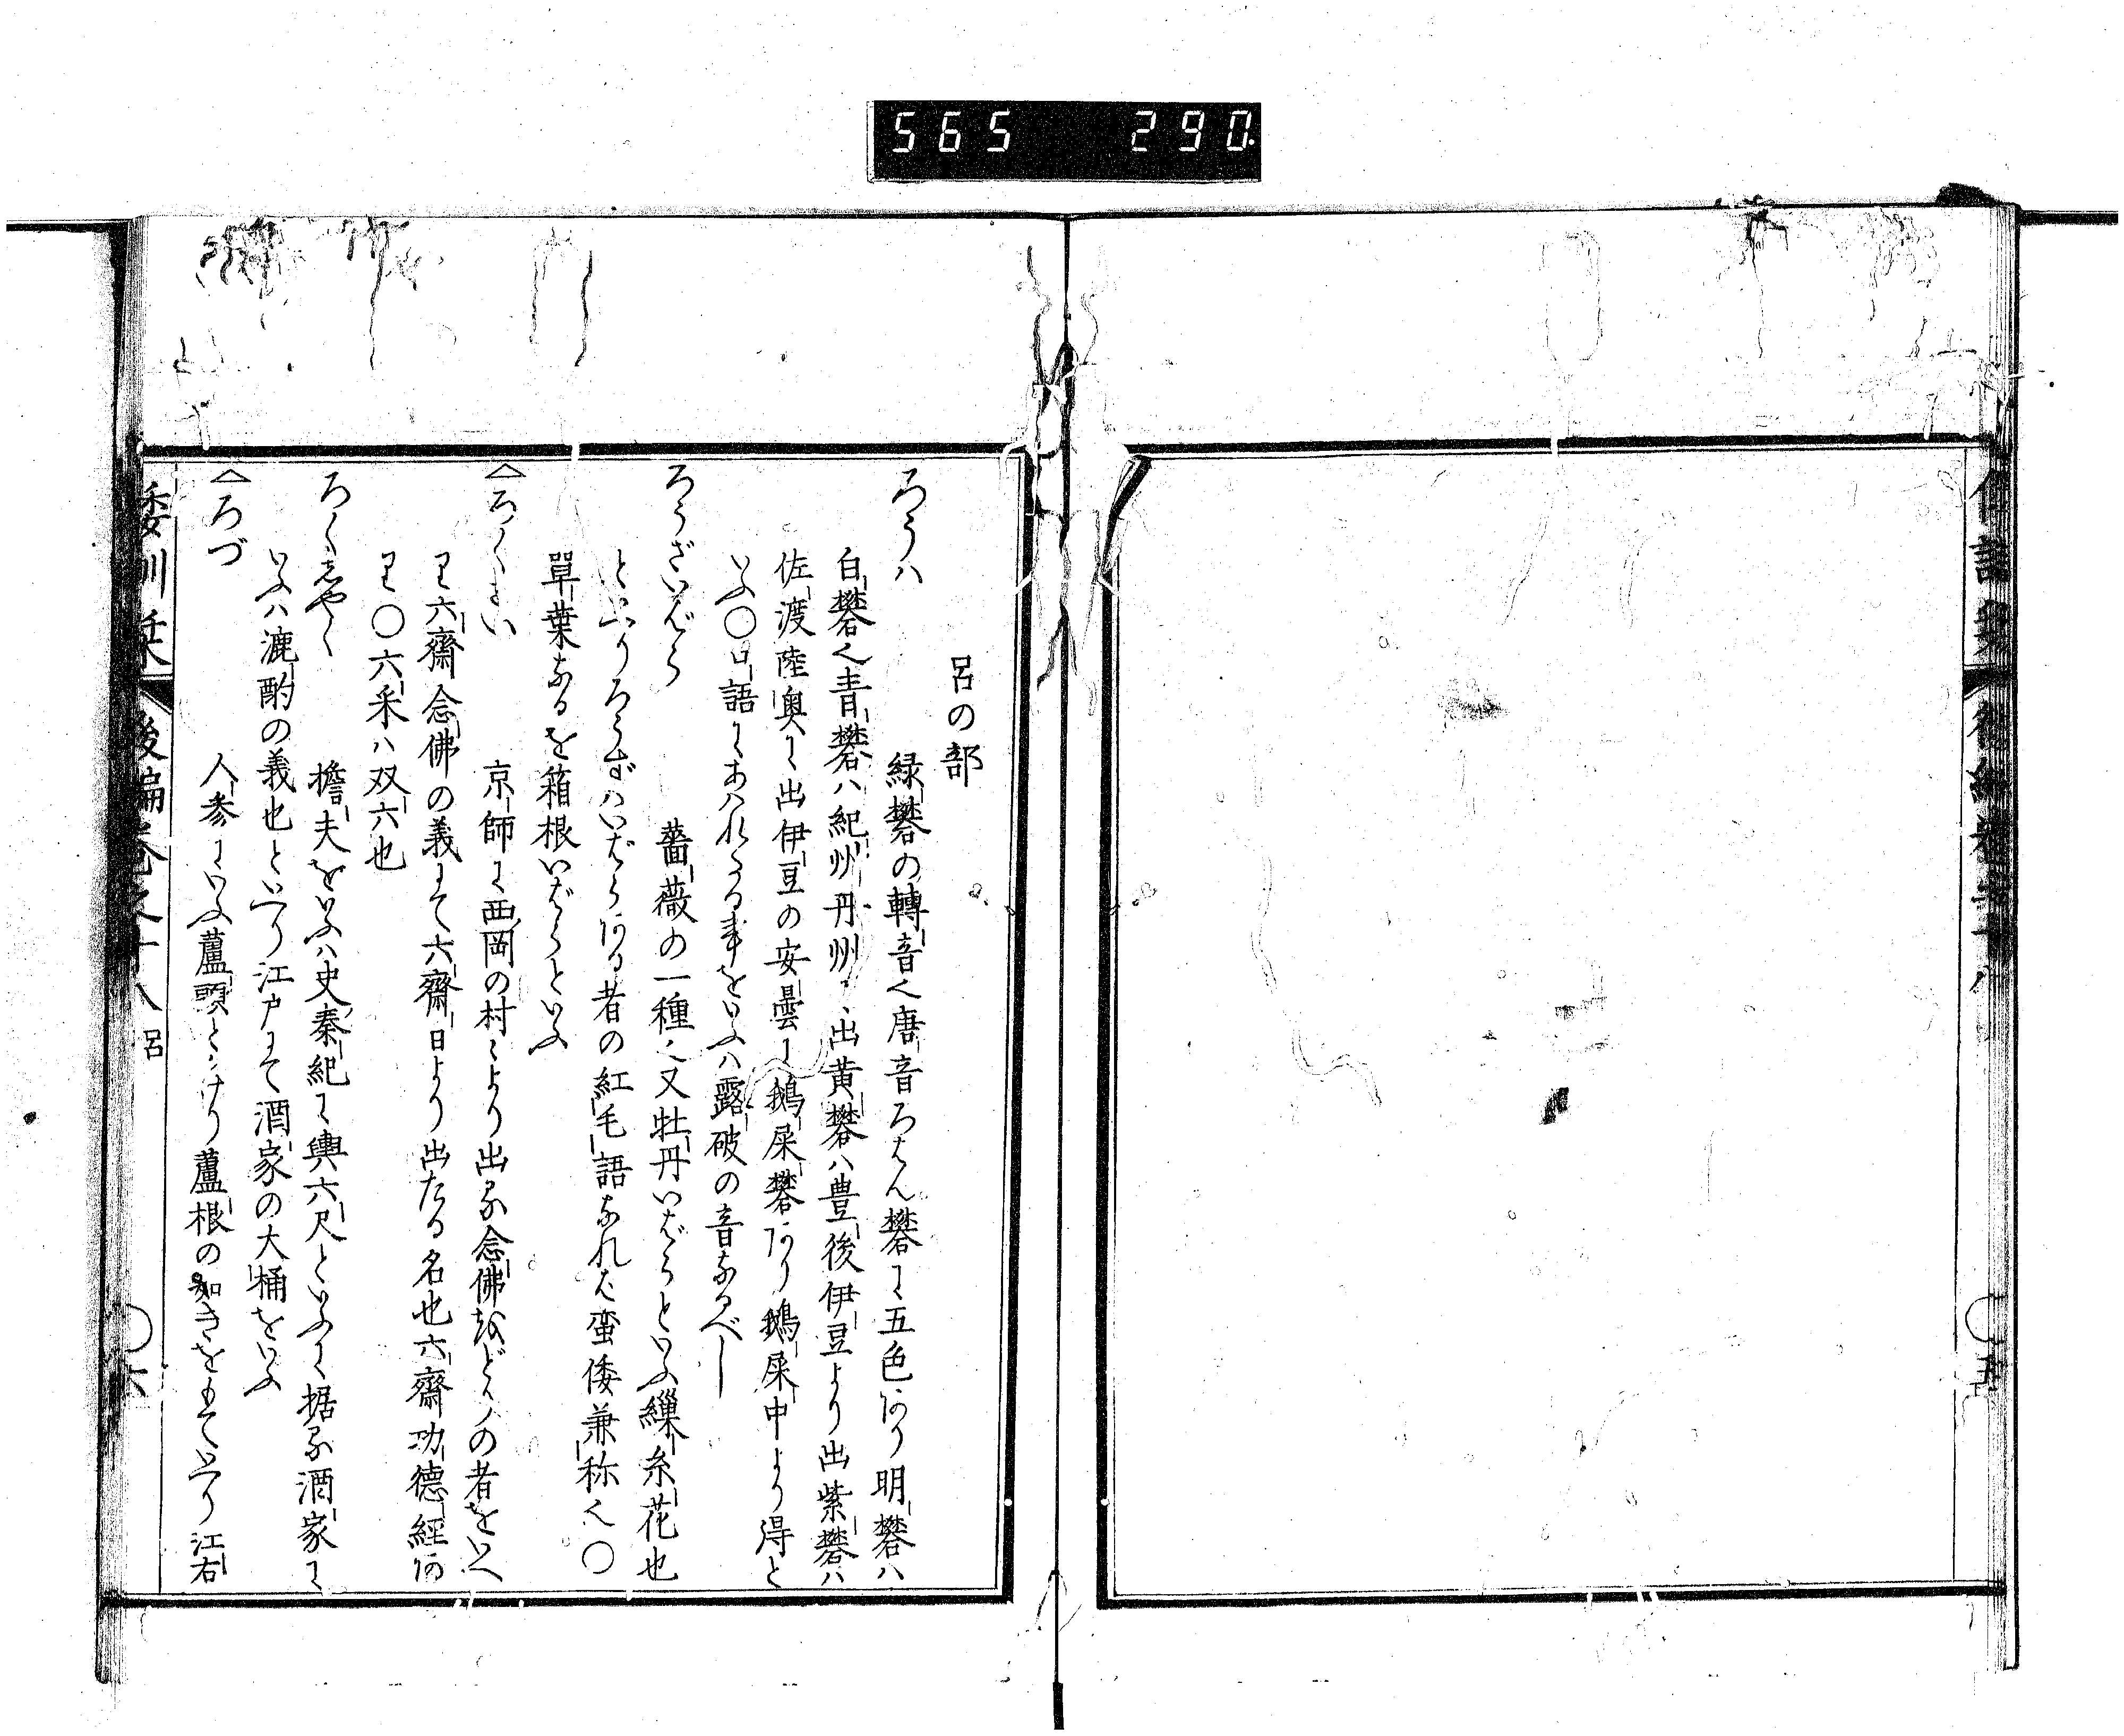 565 290
呂の部
ろうハ 緑礬の轉音也唐音ろはん礬に五色あり明礬ハ
白礬也青礬ハ紀州丹州に出黄礬ハ豊後伊豆より出紫礬ハ
佐渡陸奥に出伊豆の安曇に鵝屎礬あり鵝屎中より得と
いふ〇口語にあハれたる事をいふハ露破の音なるべし
ろうざいばら 薔薇の一種也又牡丹いばらといふ纙糸花也
といへりろうずハいばらある者の紅毛語なれは蛮倭兼称也〇
單葉なるを箱根いばらといふ
△ろくさい 京師に西岡の村々より出る念佛をどりの者をいへ
り六齋念佛の義にて六齋日より出たる名也六齋功德經あ
り〇六采ハ双六也
ろくしやく 擔夫をいふハ史秦紀に輿六尺といふに據る酒家に
いふハ漉酌の義也といへり江戸にて酒家の大桶をいふ
△ろづ 人参にいふ蘆頭とかけり蘆根の如きをもていへり江右
倭訓栞 後編巻之十八 呂 〇六
〇五